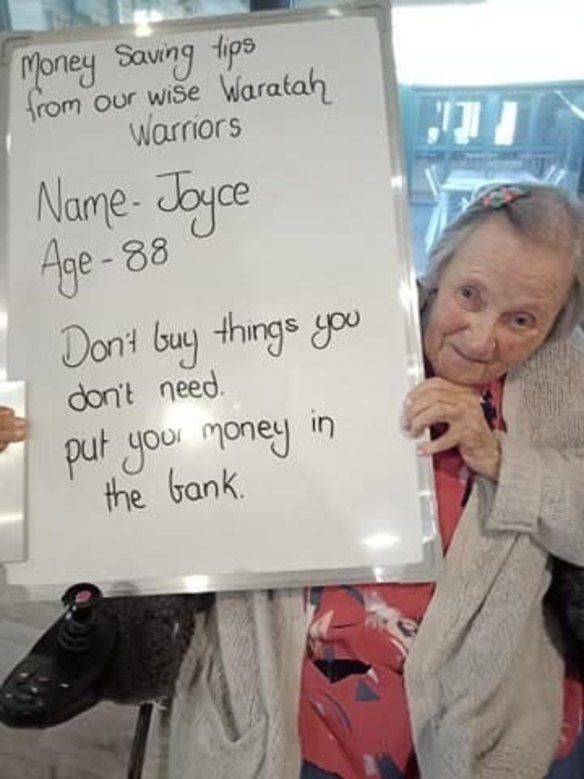 Money Saving tips
from our wise Waratah
Warriors
Name- Joyce
Age - 88
Don't buy things you
don't need.
put your money in
the bank.